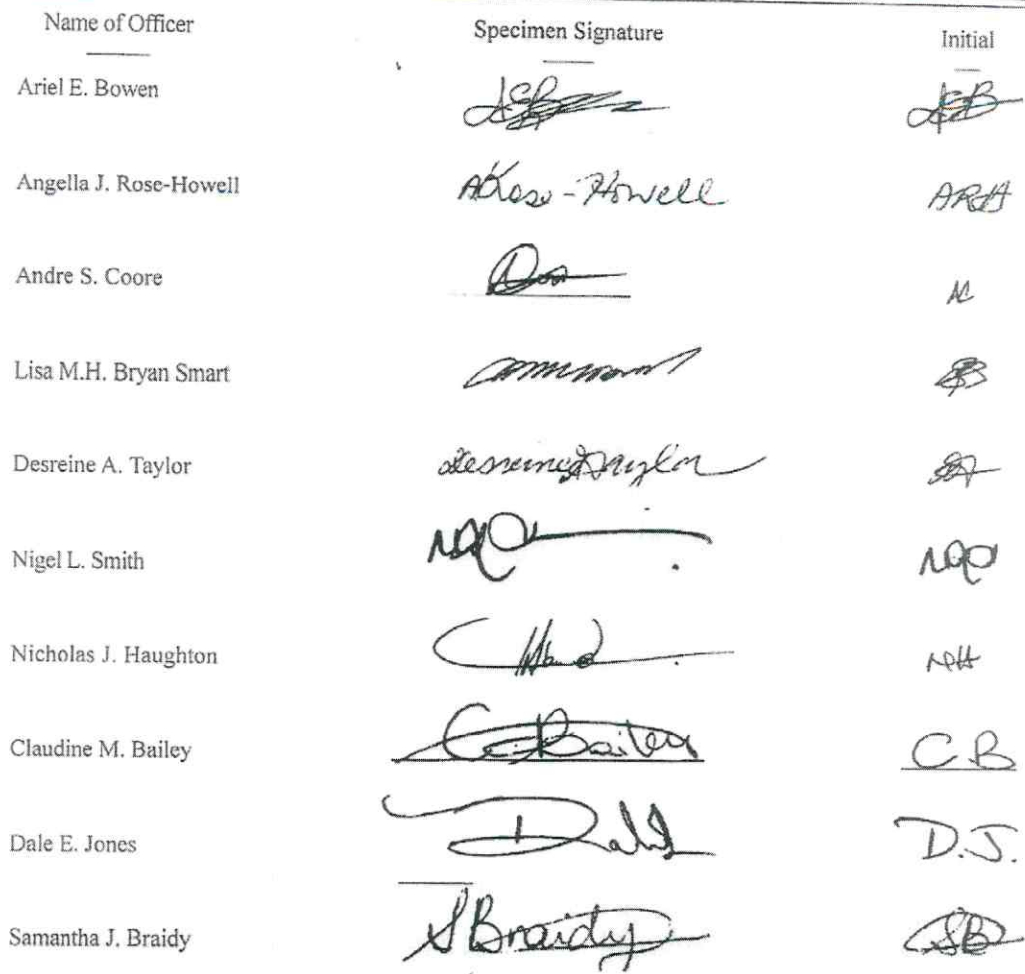 Name of Officer Specimen Signature Initial
Ariel E. Bowen AEB
Angella J. Rose-Howell ARose-Howell ARH
Andre S. Coore AC
Lisa M.H. Bryan Smart
Desreine A. Taylor DesreineATaylor
Nigel L. Smith
Nicholas J. Haughton NH
Claudine M. Bailey C.Bailey C B
Dale E. Jones D.J.
Samantha J. Braidy SBraidy SB